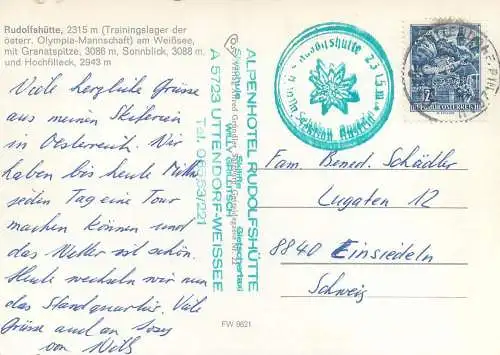 Rudolfshütte, 2315 m (Trainingslager der
österr. Olympia-Mannschaft) am Weißsee,
mit Granatspitze, 3086 m, Sonnblick, 3088 m,
und Hochfilleck, 2943 m
Viele herzliche Grüsse
aus meinen Skiferien
in Oesterreich. Wir
haben bis heute Mitte
jeden Tag eine Tour
machen können und
das Wetter ist schön.
Heute wechseln wir nun
das Standquartier. Viele
Grüsse auch an
von Willy
ALPENHOTEL RUDOLFSHÜTTE
A 5723 UTTENDORF-WEISSEE
2315 m
REPUBLIK ÖSTERREICH
Fam. Bened. Schädler
Lugaten 12
8840 Einsiedeln
Schweiz
FW 8621